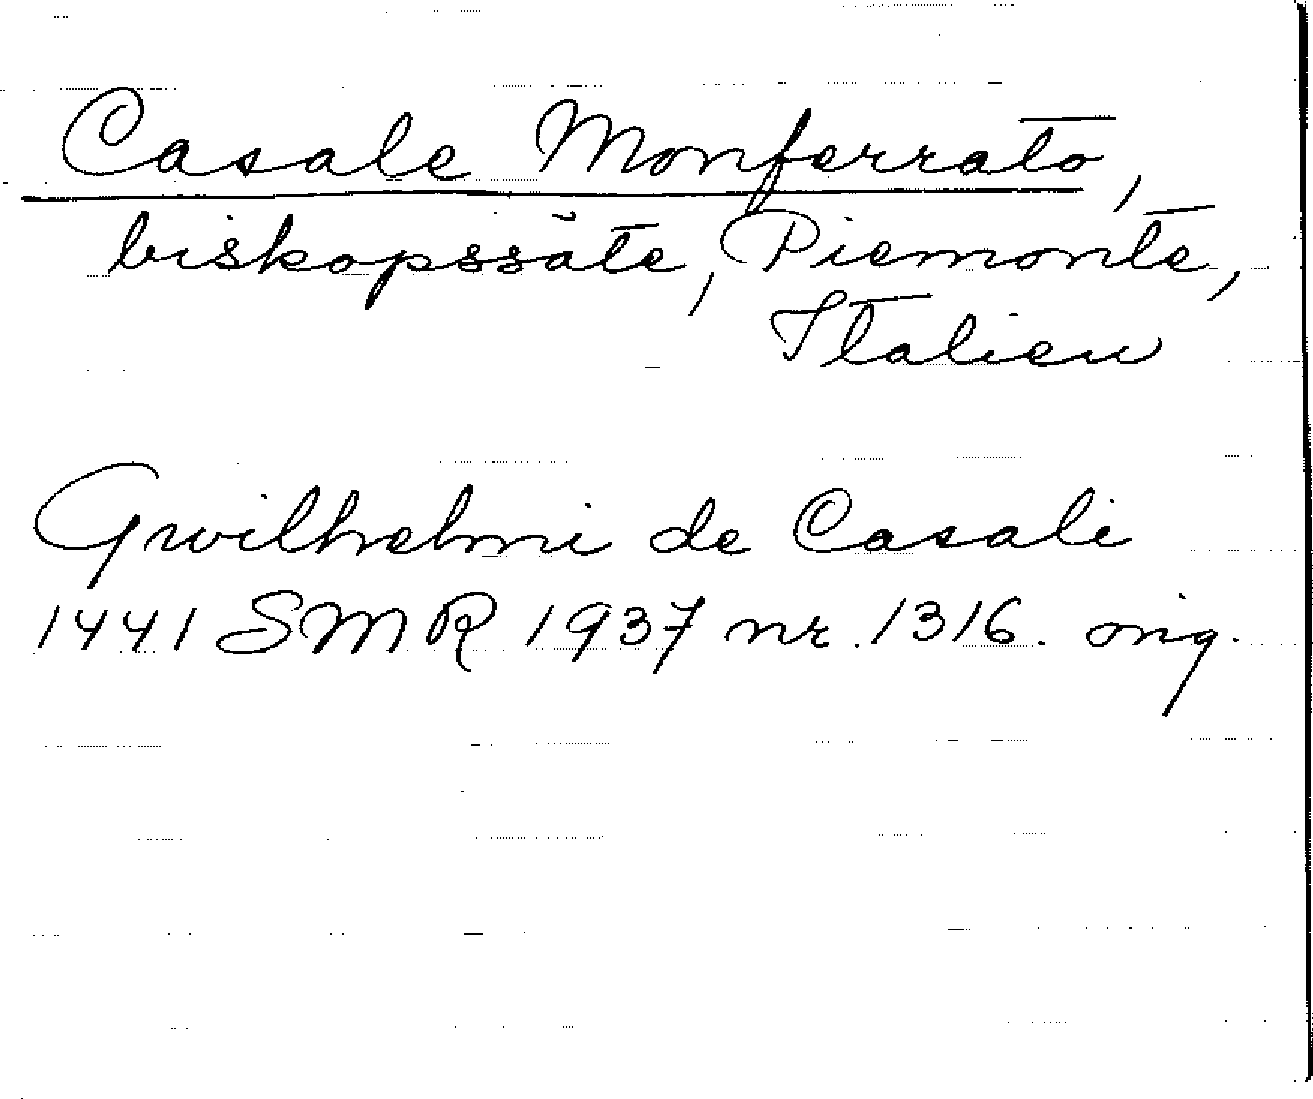 Casale Monferrato,
biskopssäte, Piemonte,
Italien
Gwilhelmi de Casali
1441 SMR 1937 nr. 1316. orig.